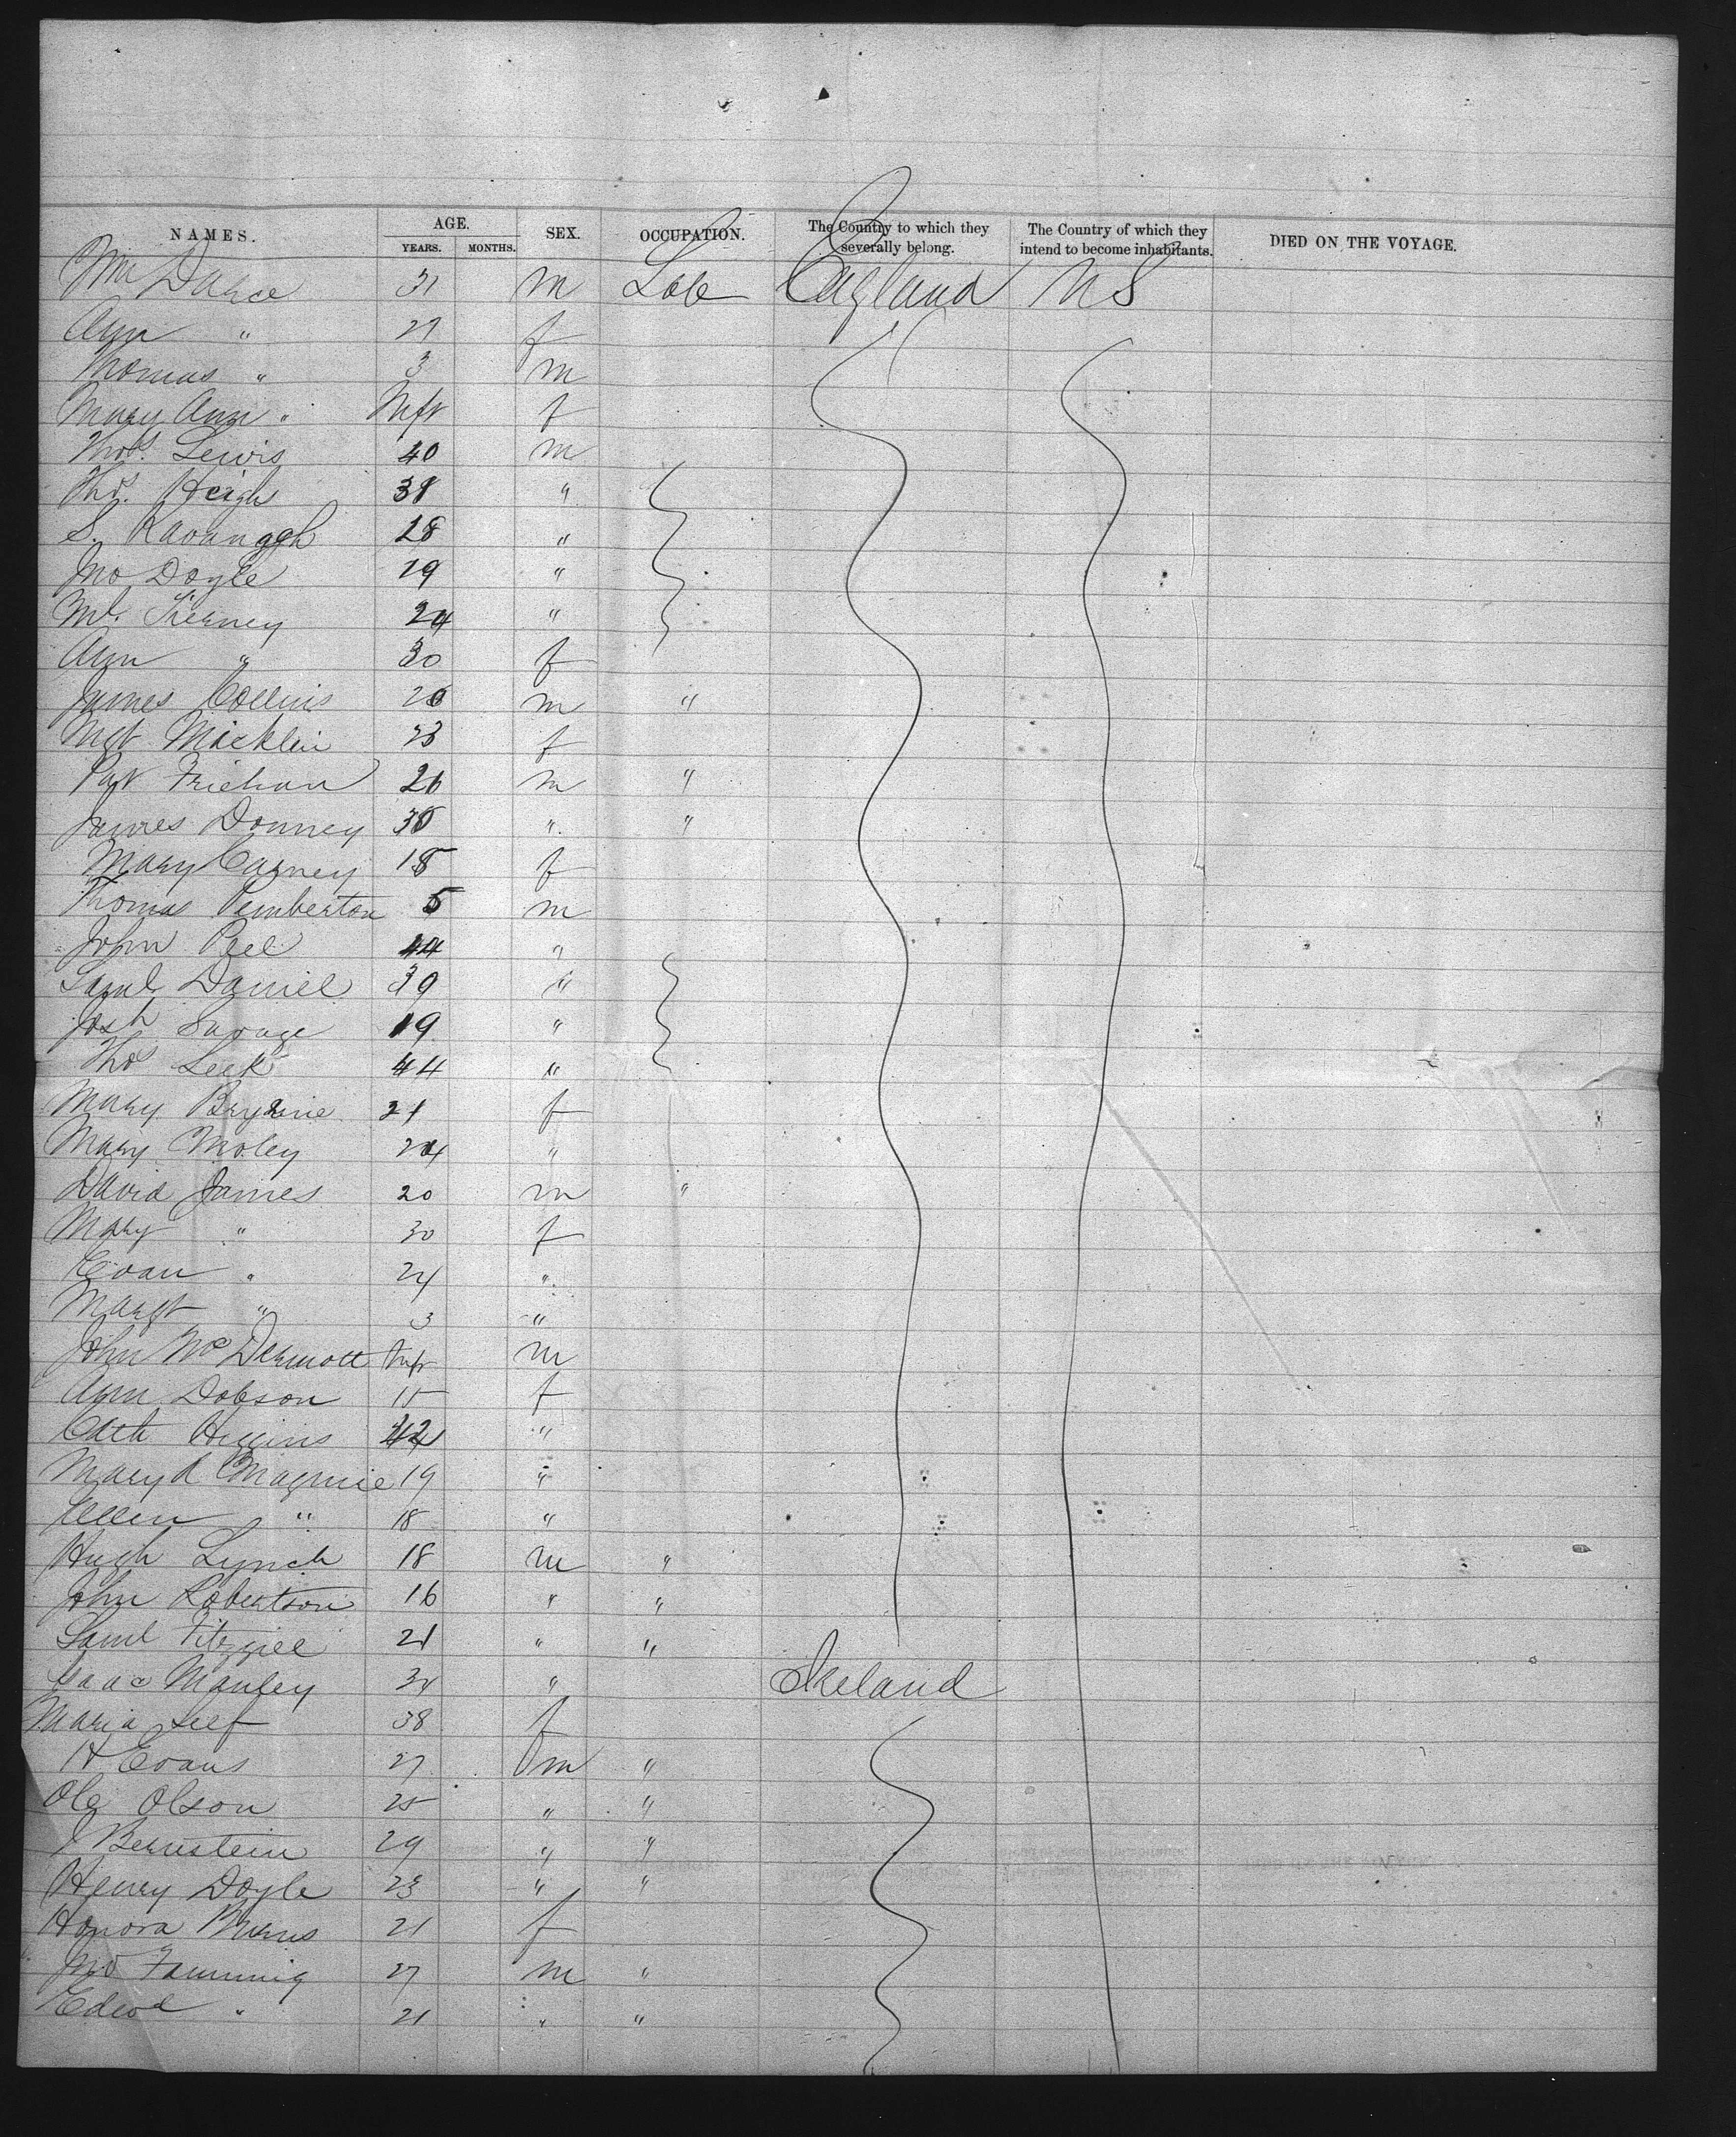 NAMES. AGE. YEARS. MONTHS. SEX. OCCUPATION. The Country to which they severally belong. The Country of which they intend to become inhabitants. DIED ON THE VOYAGE.
Wm 31 m Lab England US
Ann " 27 f
Thomas " 3 m
Mary Ann " Inft f
Thos. Lewis 40 m
Thos. Heigh 38 "
S. Kavanagh 18 "
Jno Doyle 19 "
Ml. Tierney 24 "
Ann " 30 f
James Collins 26 m "
Mgt Macklin 23 f
Pat 26 m "
James Donney 30 " "
Mary Carney 18 f
Thomas Pemberton 5 m
John Peel 44 "
Saml Daniel 39 "
Josh Savage 19 "
Thos Leek 44 "
Mary 21 f
Mary Moley 24 "
David James 20 m "
Mary " 30 f
Evan " 24 "
Margt " 3 "
John McDermott Inft m
Ann Dobson 15 f
Cath Higgins 42 "
Mary A Maguire 19 "
Ellen " 18 "
Hugh Lynch 18 m "
John Robertson 16 " "
Saml 21 " "
Isaac Manley 34 " Ireland
Maria 38 f
H Evans 27 m "
Ole Olson 25 " "
J Bernstein 29 " "
Henry Doyle 23 " "
Honora Burns 21 f
Jno Fanning 27 m "
Edwd " 21 " "